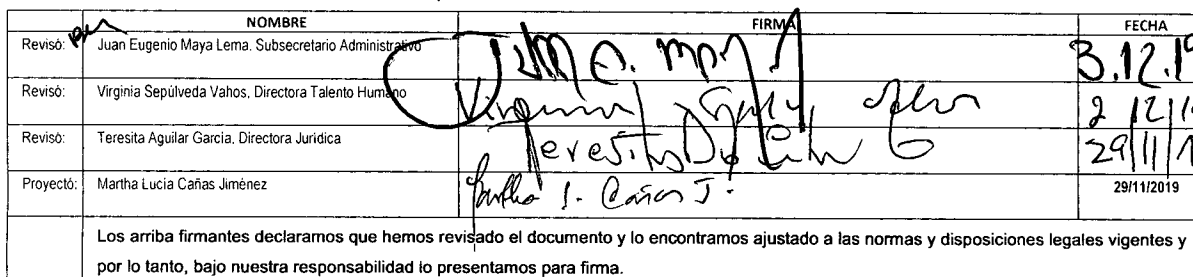 NOMBRE FIRMA FECHA
Revisó: Juan Eugenio Maya Lema. Subsecretario Administrativo 3.12.19
Revisó: Virginia Sepúlveda Vahos, Directora Talento Humano 2/12/1
Revisó: Teresita Aguilar García. Directora Jurídica 29/11/1
Proyectó: Martha Lucía Cañas Jiménez Martha L. Cañas J. 29/11/2019
Los arriba firmantes declaramos que hemos revisado el documento y lo encontramos ajustado a las normas y disposiciones legales vigentes y
por lo tanto, bajo nuestra responsabilidad lo presentamos para firma.